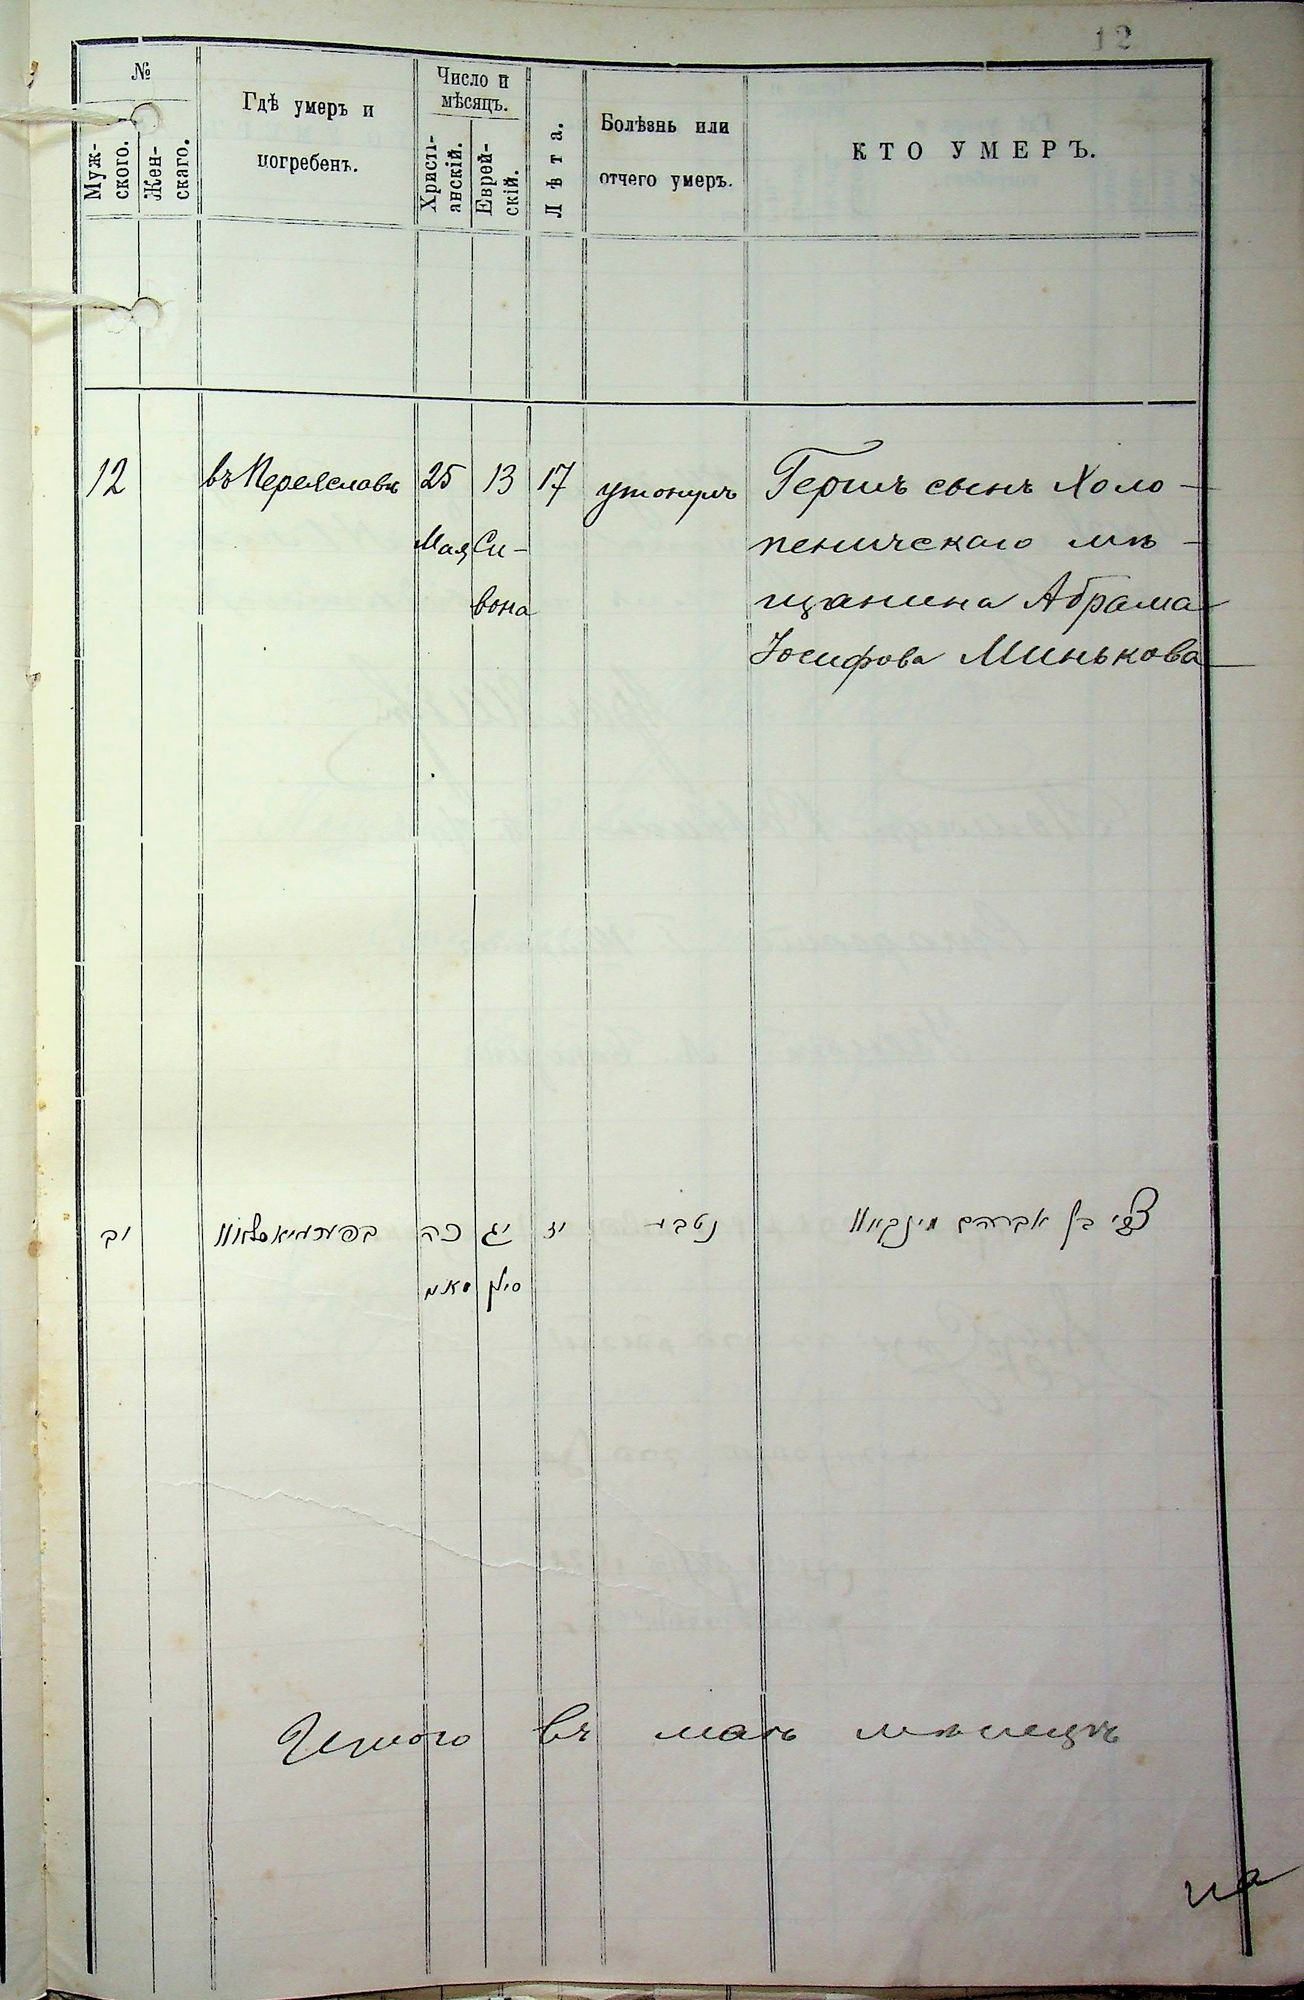 12
№
Муж-
ского.
Жен-
скаго.
Гдѣ умеръ и
погребенъ.
Число и
мѣсяцъ.
Христі-
анскій.
Еврей-
скій.
Лѣта.
Болѣзнь или
отчего умеръ.
КТО УМЕРЪ.
12 въ Переяславѣ 25 13 17 утонулъ Гершъ сынъ Холо-
Мая Си- пеническаго мѣ-
вона щанина Абрама
Іосифова Минькова
יב בפערעיאסלאוו כה יג יז נטבע צבי בן אברהם מינקאוו
מאי סיון
Умершаго въ маѣ мѣсяцѣ
на